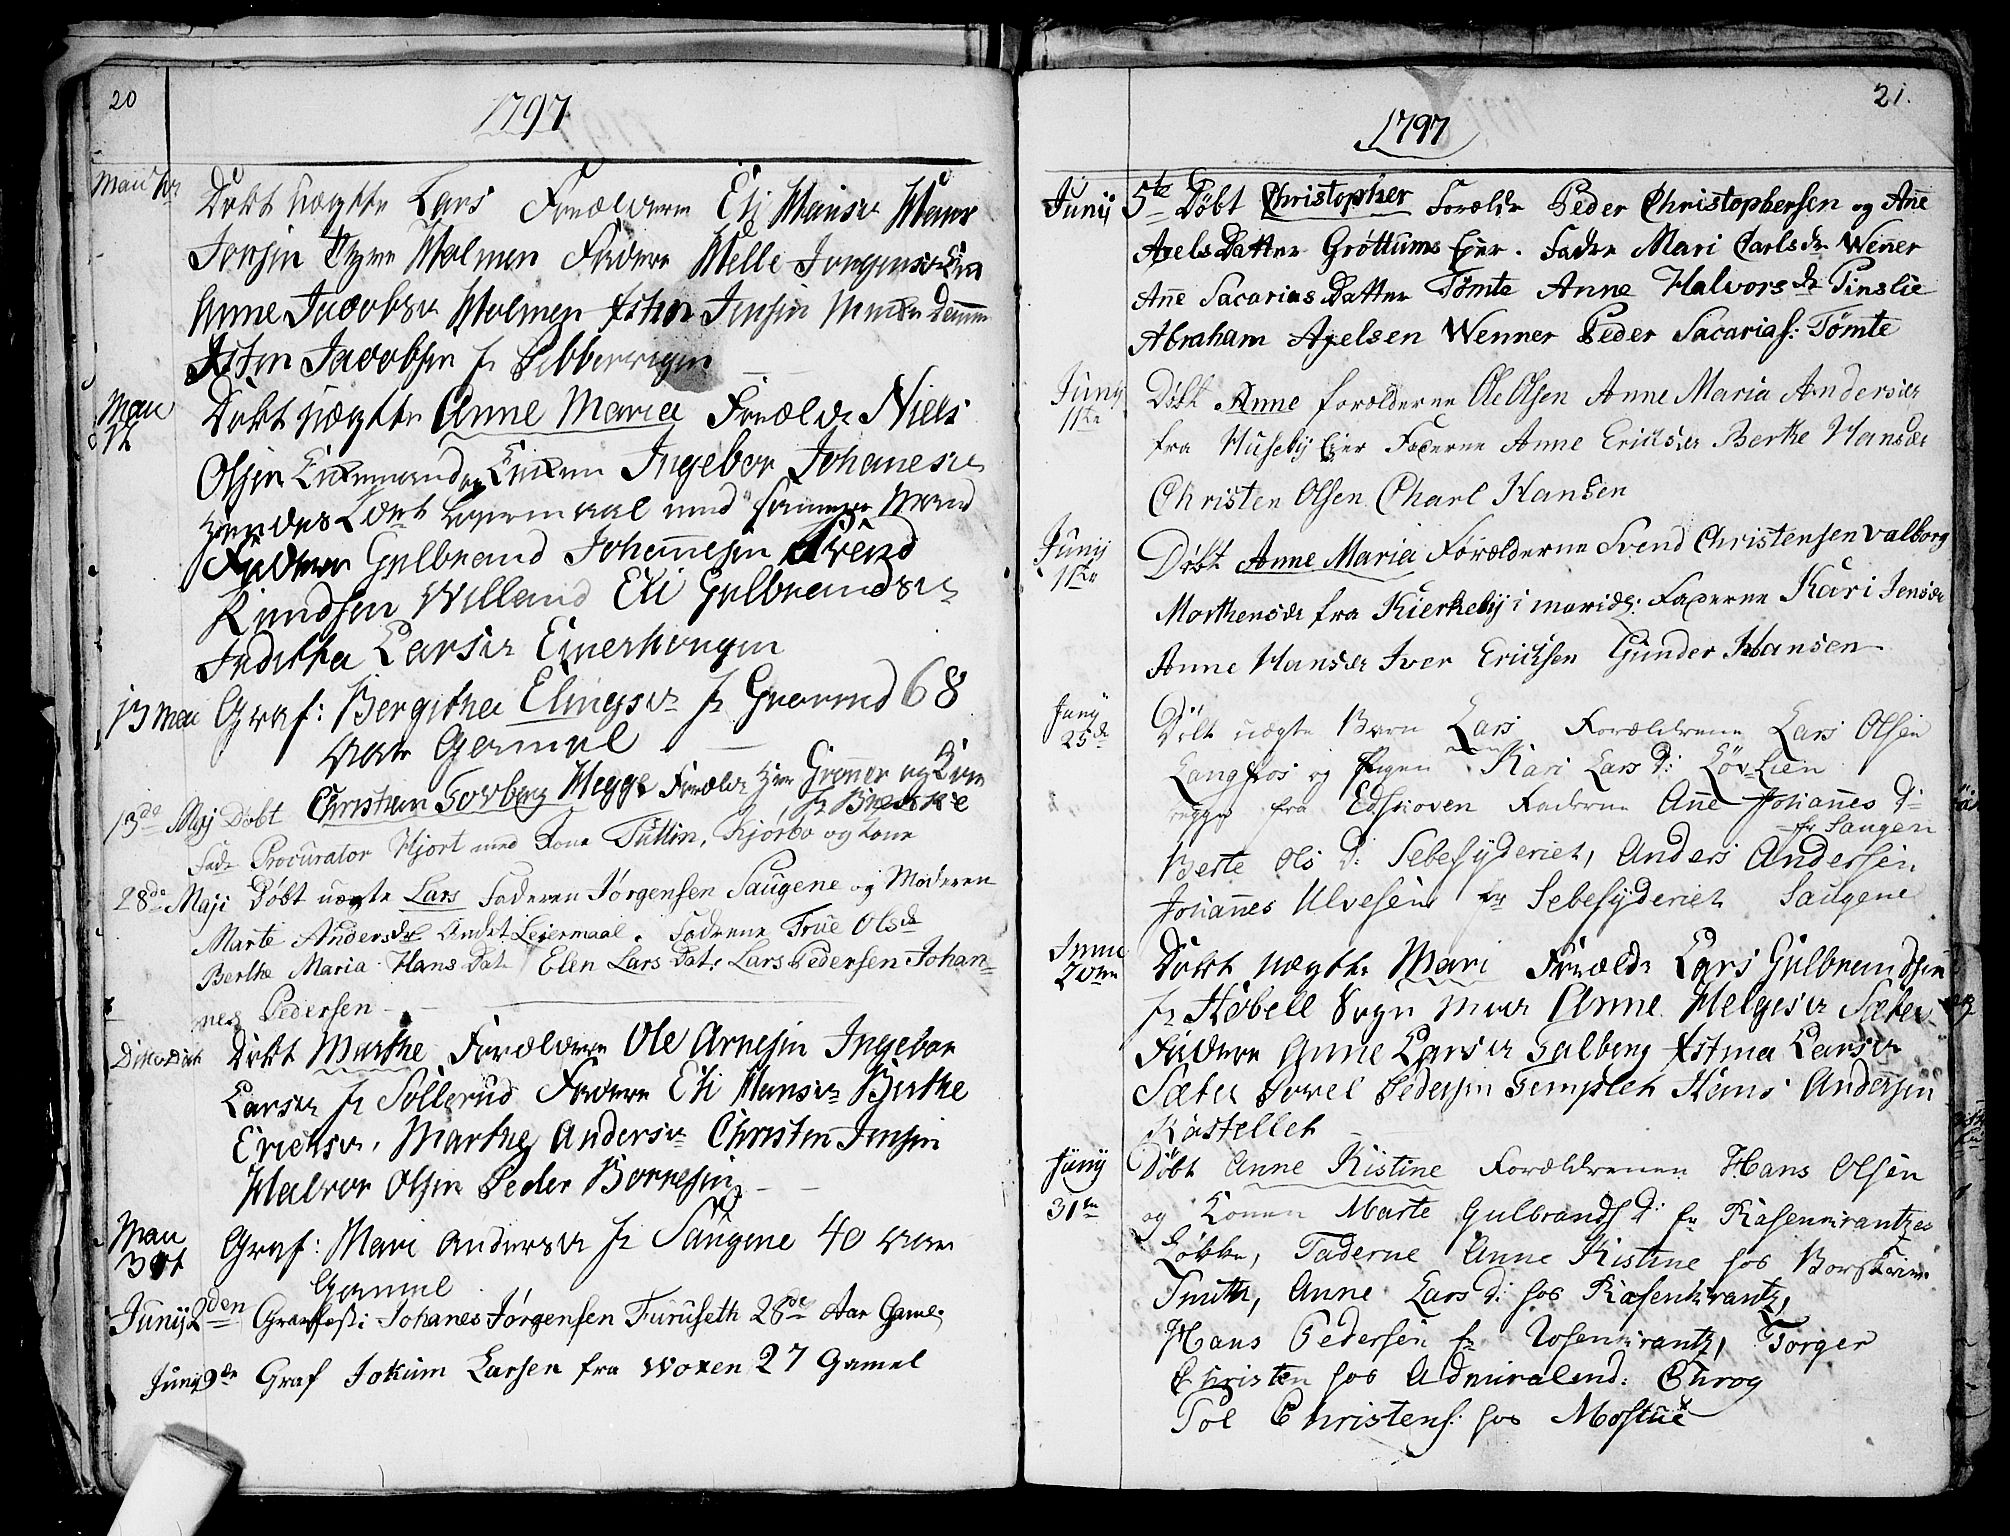 20
1797
Døbt uægte Lars Forældrene Eli Hansdr
Jensen Holmen Faddere Helle
Anne Jacobsdr Holmen Jensen
Jacobsen fr
Døbt uægte Anne Maria Forældr Niels
Olsen Enkemand og Enken Ingebor Johanesdr
Hendes Leiermaal med samme Mand
Faddere Gulbrand Johannesen Svend
Knudsen Willand Eli Gulbrandsdr
Larsdr Eierhougen
13 Mai Graf: Bergithe Elingsdr fr 68
Aar Gamel
13de Maj Døbt Christian Torberg Hegge Forældr Hr Grønner og Kone
fr Brække
Fadr Procurator Hjort med Kone Tullin, Kjørbo og Kone
28de Maji Døbt uægte Lars Faderen Jørgensen Saugene og Moderen
Marte Andersdr Andet Leiermaal. Fadrene True Olsdr
Berthe Maria Hans Dat: Elen Lars Dat: Lars Pedersen Johan=
nes Pedersen
Døbt Marthe Forældrene Ole Arnesen Ingebor
Larsdr fr Sollerud Faddere Eli Hansdr Birthe
Ericksdr, Marthe Andersdr Christen Jensen
Halvor Olsen Peder Borresen
Graf: Mari Andersdr fr Saugene 40 Aar
Gammel
Junij 2den Graffæst: Johanes Jørgensen Furuseth 28de Aar Gamel
Junij 9de Graf Jokum Larsen fra Woxen 27 Gamel
21.
1797
Junij 5te Døbt Christopher Forældr Peder Christophersen og Añe
Axels Datter Grøttums Eier. Fadre Mari Carlsdr Wener
Añe Sacarias Datter Tømte Anne Halvorsdr Pinslie
Abraham Axelsen Wenner Peder Sacarias: Tømte
Junij 11te Døbt Anne forælderne Ole Olsen Anne Maria Andersdr
fra Huseby Eier Fadderne Anne Ericksdr Berthe Hansdr
Christen Olsen Charl Hansen
Junij 11te Døbt Anne Maria Forælderne Svend Christensen Valborg
Morthensdr fra Kierkeby i maridl: Fadderne Kari Jensdr
Anne Hansdr Iver Ericksen Gunder Hansen
Juny 25de Døbt uægte Barn Lars Forældrene Lars Olsen
Langfos og Pigen Kari Larsd: Løvlien
begge fra Edsskoven Fadderne Añe Johañes d:
fr Saugen
Berte Ols d: Sebesyderiet, Anders Andersen
Johañes Ulvesen fr Sebesyderiet Saugene
Døbt uægte Mari Forældr Lars Gulbrandsen
fr Høbell Sogn Anne Helgesdr Sæter
Faddere Anne Larsdr Larsdr
Sæter Povel Pedersen Templet Hans Andersen
Kastellet
Junij 31te Døbt Anne Kistine Forældrenen Hans Olsen
og Konen Marte Gulbrandsd: fr Rasenkrantzes
Løkke, Faderne Anne Kistine hos
Smith, Anne Larsd: hos Rasenkrantz,
Hans Pedersen fr Rosenkrantz, Torger
Christen hos Admiralend: Chrog
Pol Christens: hos Mostue